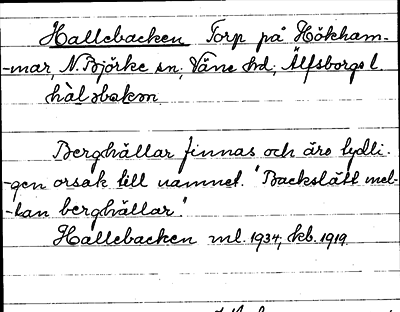 Hallebacken Torp på Hökham-
-mar, N. Björke sn, Väne hd, Älfsborgs l.
hàl əbakən
Berghällar finnas och äro tydli-
-gen orsak till namnet. "Backslätt mel-
-lan berghällar".
Hallebacken ml. 1934, kb. 1919.